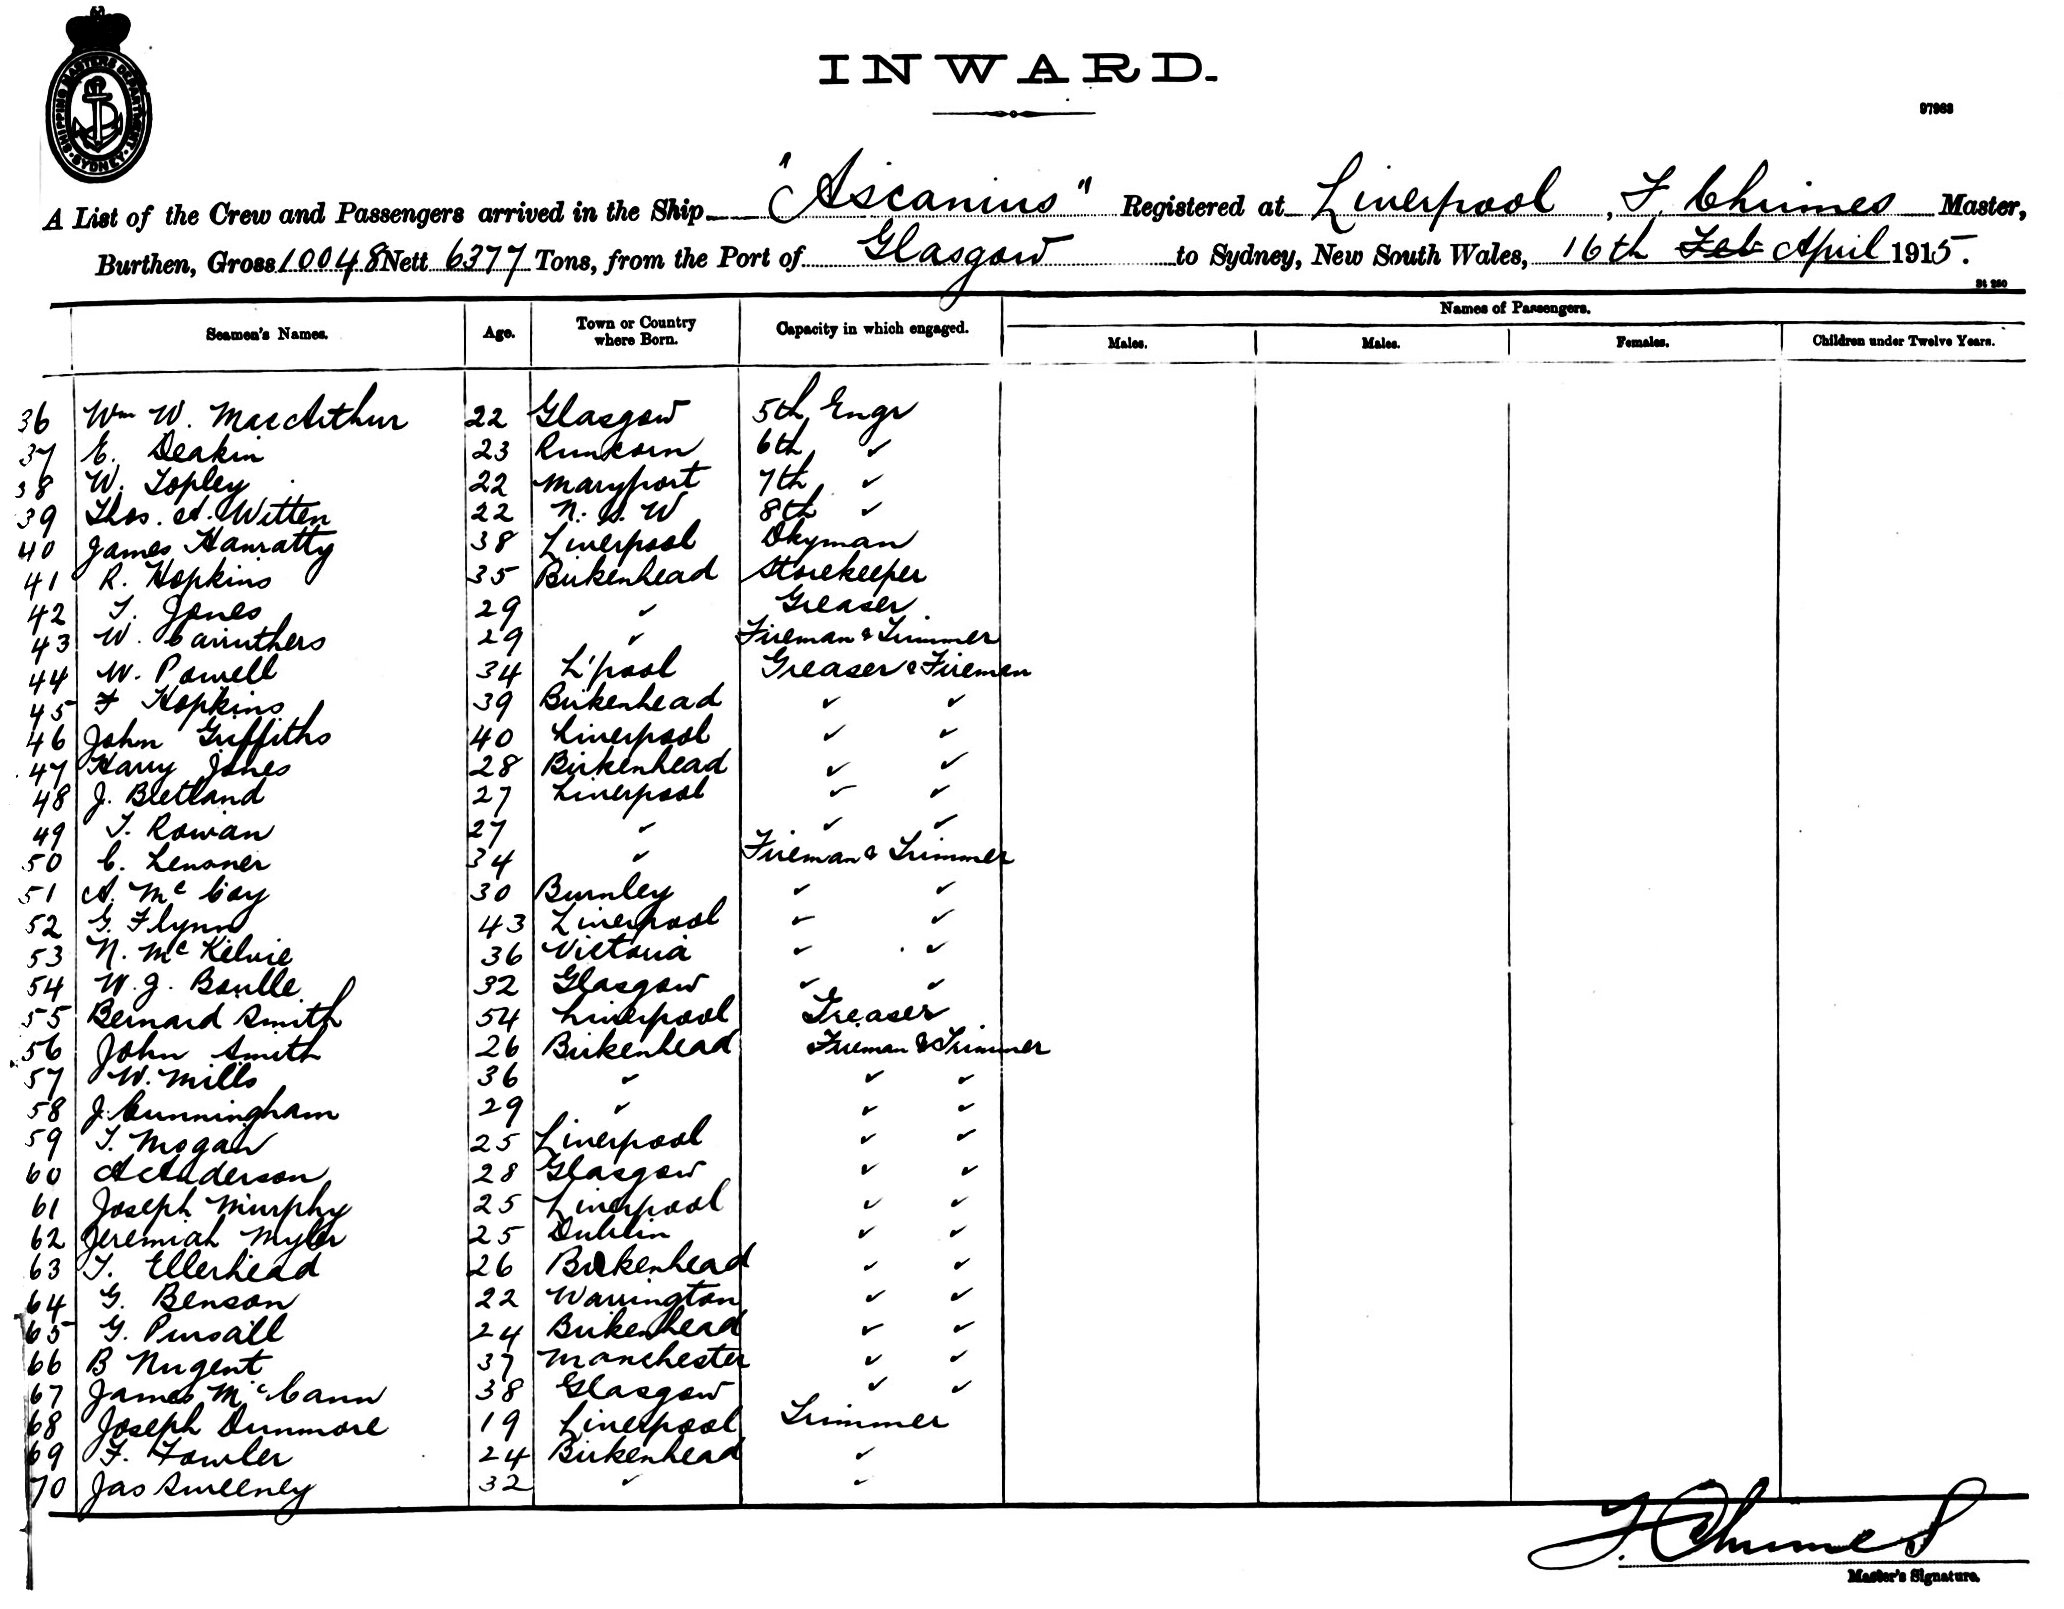 SHIPPING MASTERS DEPARTMENT
SYDNEY
INWARD.
97963
A List of the Crew and Passengers arrived in the Ship "Ascanius" Registered at Liverpool, F. Chrimes Master,
Burthen, Gross 10048 Nett 6377 Tons, from the Port of Glasgow to Sydney, New South Wales, 16th Feb April 1915.
St 250
Names of Passengers.
Seamen's Names. Age. Town or Country where Born. Capacity in which engaged. Males. Males. Females. Children under Twelve Years.
36 Wm W. MacArthur 22 Glasgow 5th Engr
37 E. Deakin 23 Runcorn 6th ✓
38 W. Topley 22 Maryport 7th ✓
39 Thos. A. Witten 22 N. S. W 8th ✓
40 James Hanratty 38 Liverpool Dkyman
41 R. Hopkins 35 Birkenhead Storekeeper
42 T. Jones 29 ✓ Greaser
43 W. Carruthers 29 ✓ Fireman & Trimmer
44 W. Powell 34 L'pool Greaser & Firemen
45 F Hopkins 39 Birkenhead ✓ ✓
46 John Griffiths 40 Liverpool ✓ ✓
47 Harry Jones 28 Birkenhead ✓ ✓
48 J. Bretland 27 Liverpool ✓ ✓
49 T. Rowan 27 ✓ ✓ ✓
50 C. 34 ✓ Fireman & Trimmer
51 A. McCoy 30 Burnley ✓ ✓
52 G. Flynn 43 Liverpool ✓ ✓
53 N. McKelvie 36 Victoria ✓ ✓
54 W. J. 32 Glasgow ✓ ✓
55 Bernard Smith 54 Liverpool Greaser
56 John Smith 26 Birkenhead Fireman & Trimmer
57 W. Mills 36 ✓ ✓ ✓
58 J. Cunningham 29 ✓ ✓ ✓
59 T. Mogan 25 Liverpool ✓ ✓
60 A Anderson 28 Glasgow ✓ ✓
61 Joseph Murphy 25 Liverpool ✓ ✓
62 Jeremiah Myler 25 Dublin ✓ ✓
63 T. Ellerhead 26 Birkenhead ✓ ✓
64 G. Benson 22 Warrington ✓ ✓
65 G. Pursall 24 Birkenhead ✓ ✓
66 B Nugent 37 Manchester ✓ ✓
67 James McCann 38 Glasgow ✓ ✓
68 Joseph Dunmore 19 Liverpool Trimmer
69 F. Fowler 24 Birkenhead ✓
70 Jas Sweeney 32 ✓ ✓
F. Chrimes
Master's Signature.